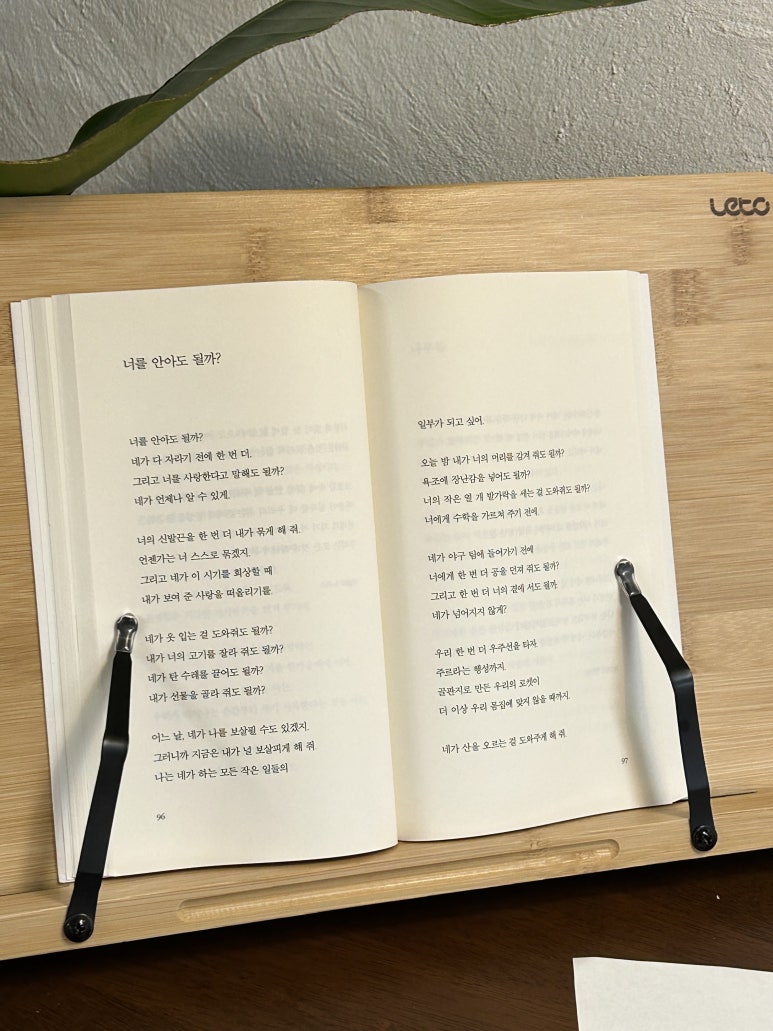 leto
너를 안아도 될까?
너를 안아도 될까?
네가 다 자라기 전에 한 번 더.
그리고 너를 사랑한다고 말해도 될까?
네가 언제나 알 수 있게.
너의 신발끈을 한 번 더 내가 묶게 해 줘.
언젠가는 너 스스로 묶겠지.
그리고 네가 이 시기를 회상할 때
내가 보여 준 사랑을 떠올리기를.
네가 옷 입는 걸 도와줘도 될까?
내가 너의 고기를 잘라 줘도 될까?
네가 탄 수레를 끌어도 될까?
내가 선물을 골라 줘도 될까?
어느 날, 네가 나를 보살필 수도 있겠지.
그러니까 지금은 내가 널 보살피게 해 줘.
나는 네가 하는 모든 작은 일들의
96
일부가 되고 싶어.
오늘 밤 내가 너의 머리를 감겨 줘도 될까?
욕조에 장난감을 넣어도 될까?
너의 작은 열 개 발가락을 세는 걸 도와줘도 될까?
너에게 수학을 가르쳐 주기 전에.
네가 야구 팀에 들어가기 전에
너에게 한 번 더 공을 던져 줘도 될까?
그리고 한 번 더 너의 곁에 서도 될까
네가 넘어지지 않게?
우리 한 번 더 우주선을 타자.
주르라는 행성까지.
골판지로 만든 우리의 로켓이
더 이상 우리 몸집에 맞지 않을 때까지.
네가 산을 오르는 걸 도와주게 해 줘.
97